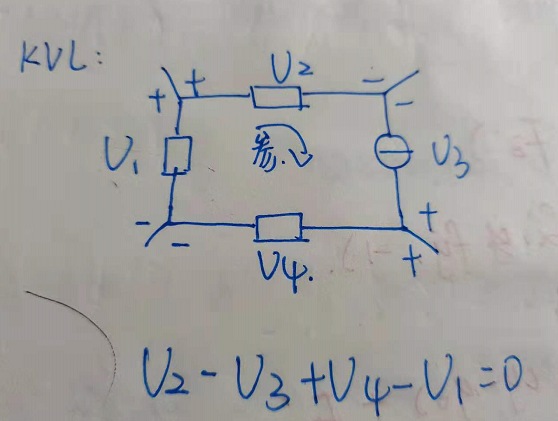 KVL:
U2
+ + - -
U1 参. U3
- - + +
U4.
U2-U3+U4-U1=0